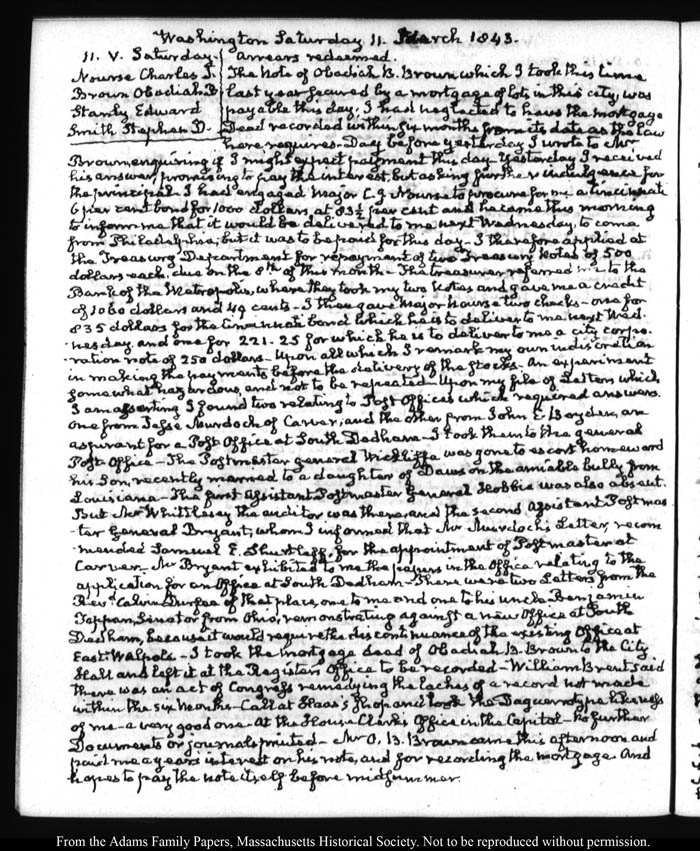 Washington Saturday 11. March 1843.
11. V. Saturday. arrears redeemed.
Nourse Charles J. The Note of Obadiah B. Brown which I took this time
Brown Obadiah B last year secured by a mortgage of lots in this city, was
Stanly Edward payable this day. I had neglected to have the mortgage
Smith Stephen D. Deed recorded within six months from its date as the law
here requires. Day before yesterday I wrote to Mr
Brown, enquiring if I might expect payment this day. Yesterday I received
his answer, promising to pay the interest, but asking further indulgence for
the principal. I had engaged Major C. J. Nourse to procure for me a Cincinnati
6 per cent bond for 1000 dollars, at 83½ per cent and he came this morning
to inform me that it would be delivered to me next Wednesday, to come
from Philadelphia; but it was to be paid for this day. I therefore applied at
the Treasury Department for repayment of two Treasury Notes of 500
dollars each due on the 8th of this month. The treasurer referred me to the
Bank of the Metropolis, where they took my two Notes and gave me a credit
of 1060 dollars and 49 cents. I then gave Major Nourse two checks - one for
835 dollars for the Cincinnati bond which he is to deliver to me next Wed-
nesday, and one for 221.25 for which he is to deliver to me a city corpo-
ration note of 250 dollars. Upon all which I remark my own indiscretion
in making the payments before the delivery of the stocks. An experiment
somewhat hazardous, and not to be repeated. Upon my file of Letters which
I am assorting I found two relating to Post Offices which required answers.
One from Jesse Murdock of Carver; and the other from John E. Boyden, an
aspirant for a Post Office at South Dedham. I took them to the general
Post Office - The Postmaster general Wickliffe was gone to escort homeward
his Son, recently married to a daughter of Dawson the amiable bully from
Louisiana - The first Assistant Postmaster General Hobbie was also absent.
But Mr Whittlesey the auditor was there, and the second Assistant Postmas
ter General Bryant, whom I informed that Mr Murdock's Letter, recom
mended Samuel E. Shurtleff, for the appointment of Postmaster at
Carver. Mr Bryant exhibited to me the papers in the Office relating to the
application for an Office at South Dedham - There were two Letters from the
Revd. Calvin Durfee of that place, one to me and one to his uncle Benjamin
Tappan, Senator from Ohio, remonstrating against a new Office at South
Dedham, because it would require the discontinuance of the existing Office at
East Walpole - I took the mortgage deed of Obadiah B. Brown to the City
Hall and left it at the Registers Office to be recorded - William Brent said
there was an act of Congress remedying the laches of a record not made
within the six months - Call at Haas's shop and took the Daguerrotype likeness
of me - a very good one. At the House Clerk's Office in the Capitol - No further
Documents or journals printed - Mr O. B. Brown came this afternoon and
paid me a years interest on his note, and for recording the mortgage. And
hopes to pay the note itself before midsummer.
From the Adams Family Papers, Massachusetts Historical Society. Not to be reproduced without permission.